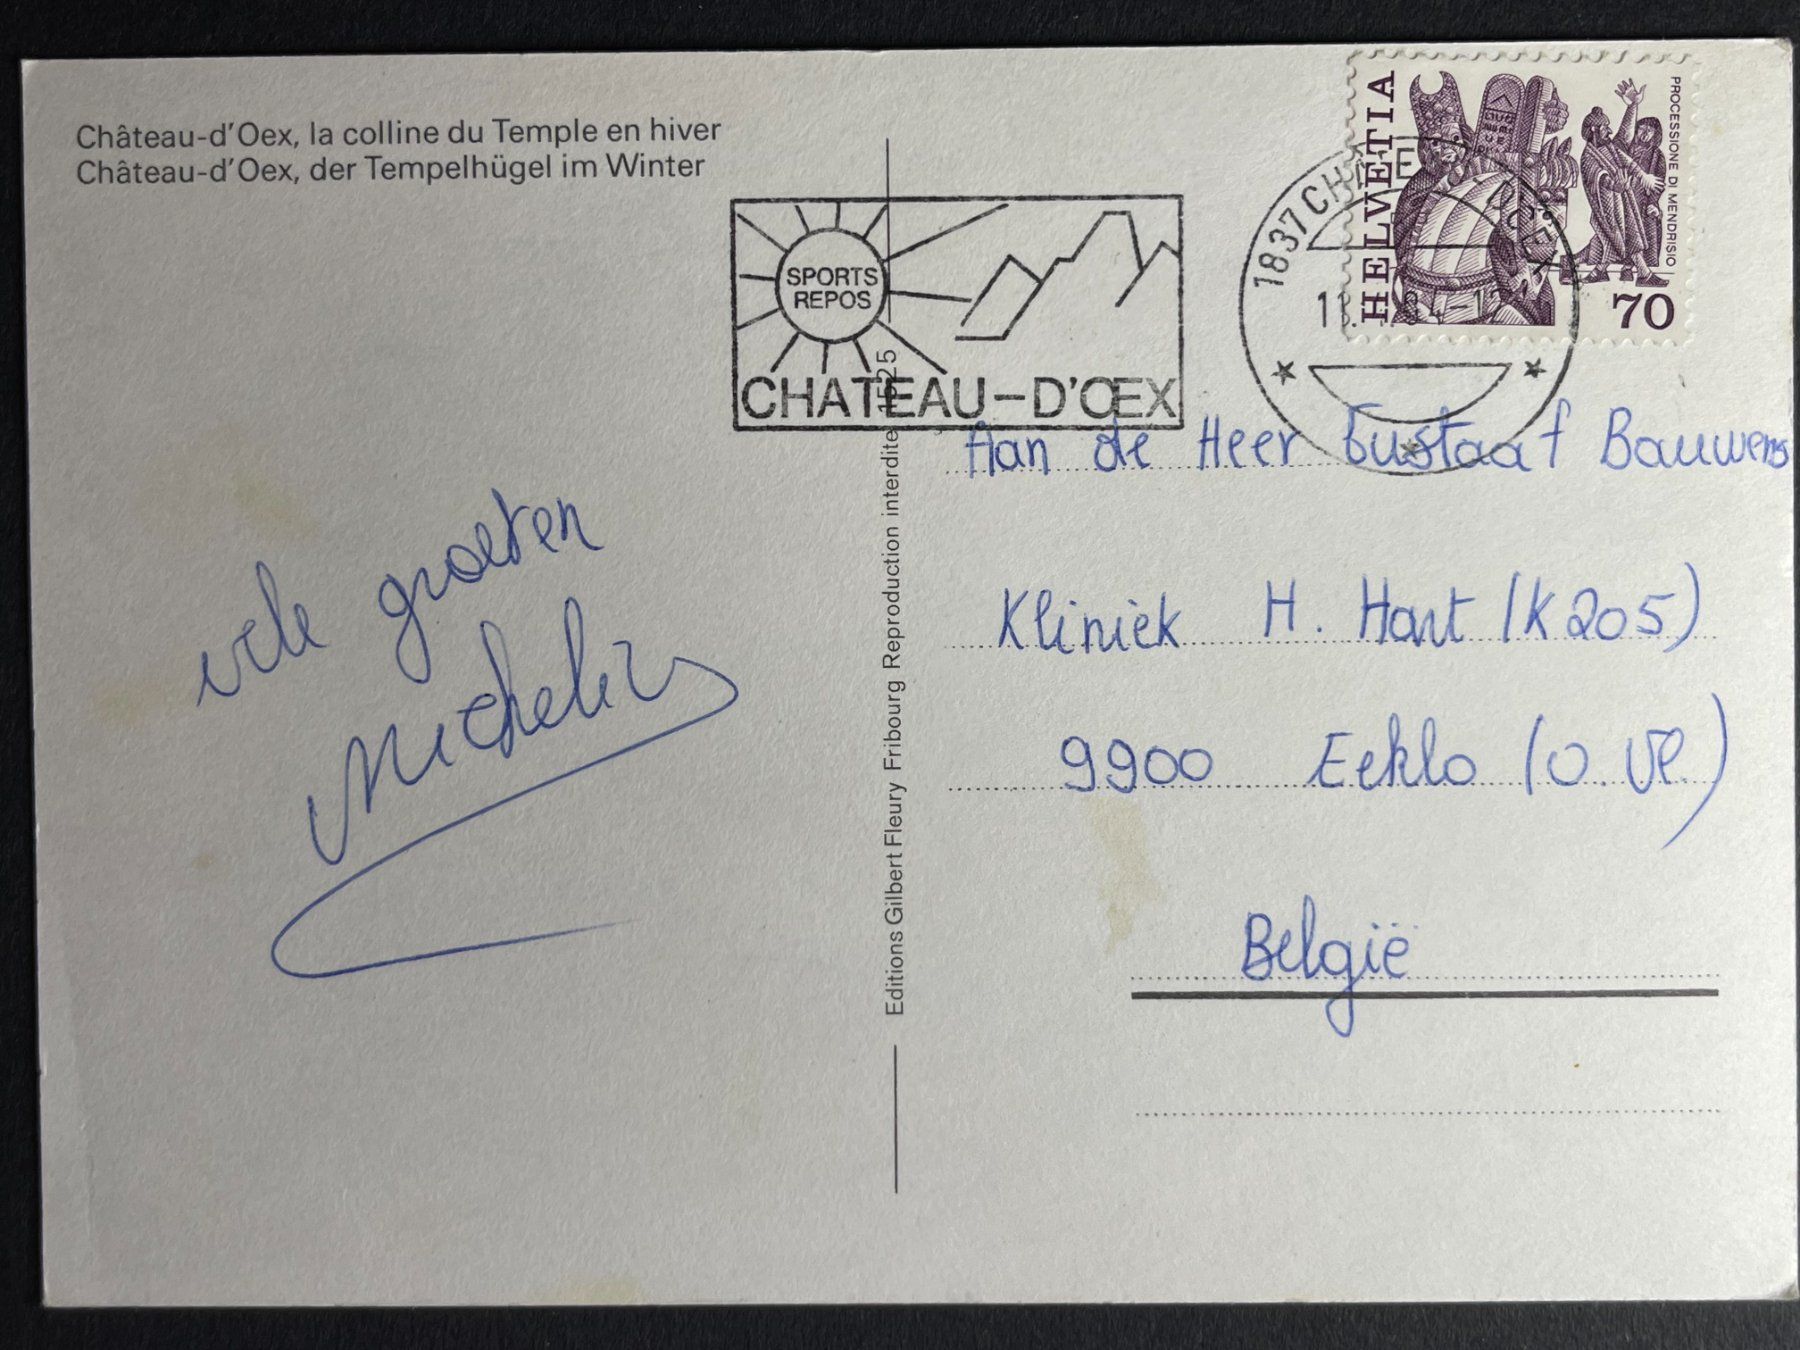 Château-d'Oex, la colline du Temple en hiver
Château-d'Oex, der Tempelhügel im Winter
SPORTS
REPOS
CHATEAU-D'ŒX
1837 CH
HELVETIA
PROCESSIONE DI MENDRISIO
70
Editions Gilbert Fleury Fribourg Reproduction interdite 1525
vele groeten
Aan de Heer Gustaaf Bauwens
Kliniek H. Hart (K205)
9900 Eeklo (O. Vl.)
België